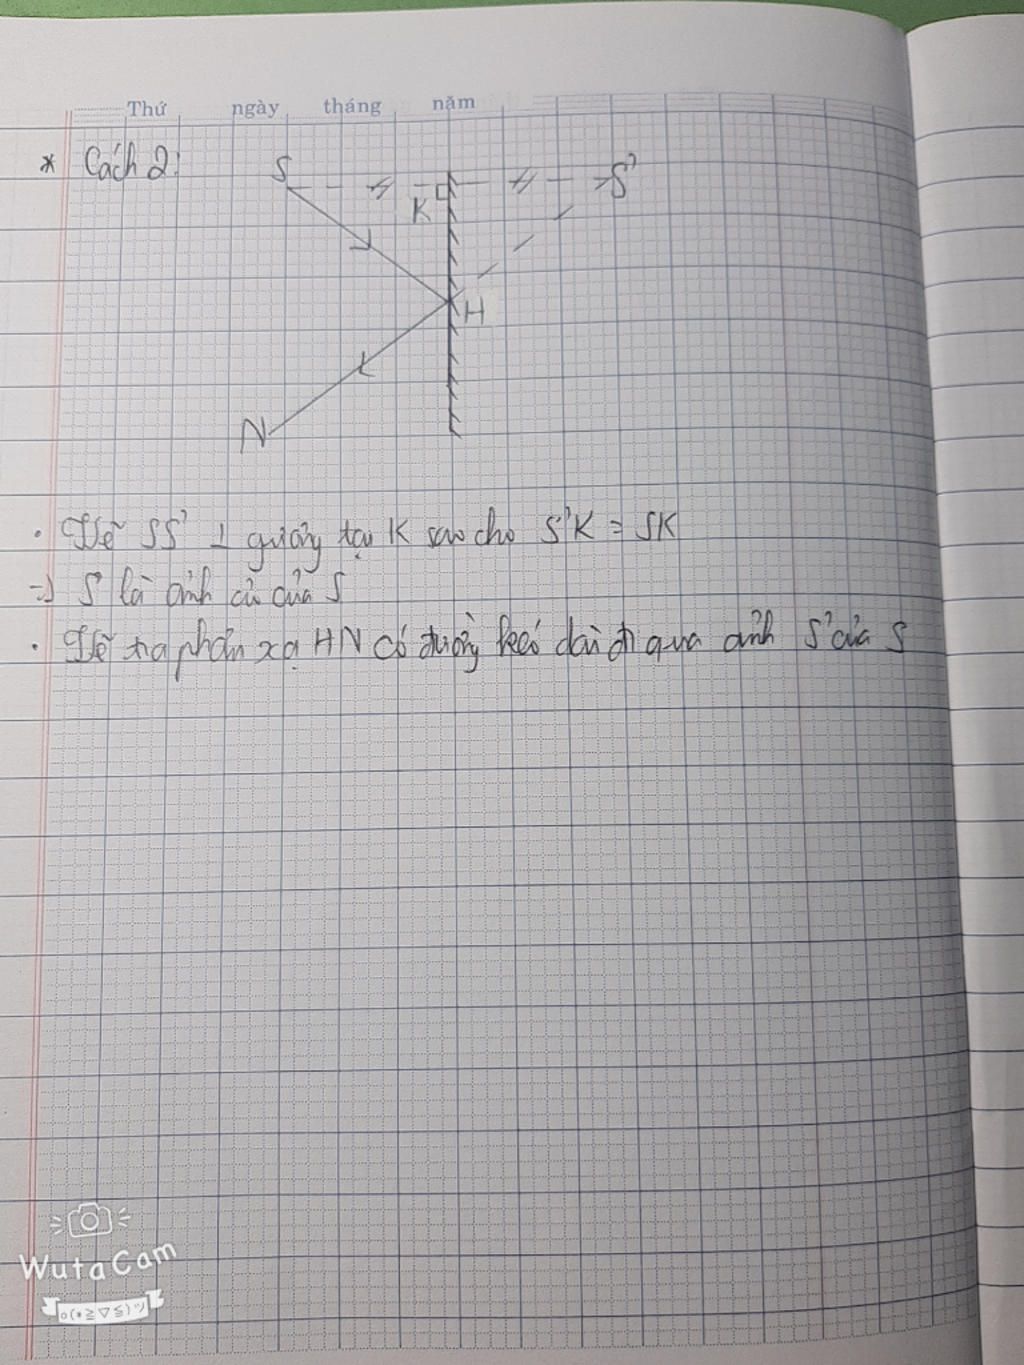 Thứ ngày tháng năm
* Cách 2:
S K S'
H
N
. Vẽ SS' ⊥ gương tại K sao cho S'K = SK
=> S' là ảnh của S
. Vẽ tia phản xạ HN có đường kéo dài đi qua ảnh S' của S
WutaCam
o(*≧▽≦)ツ